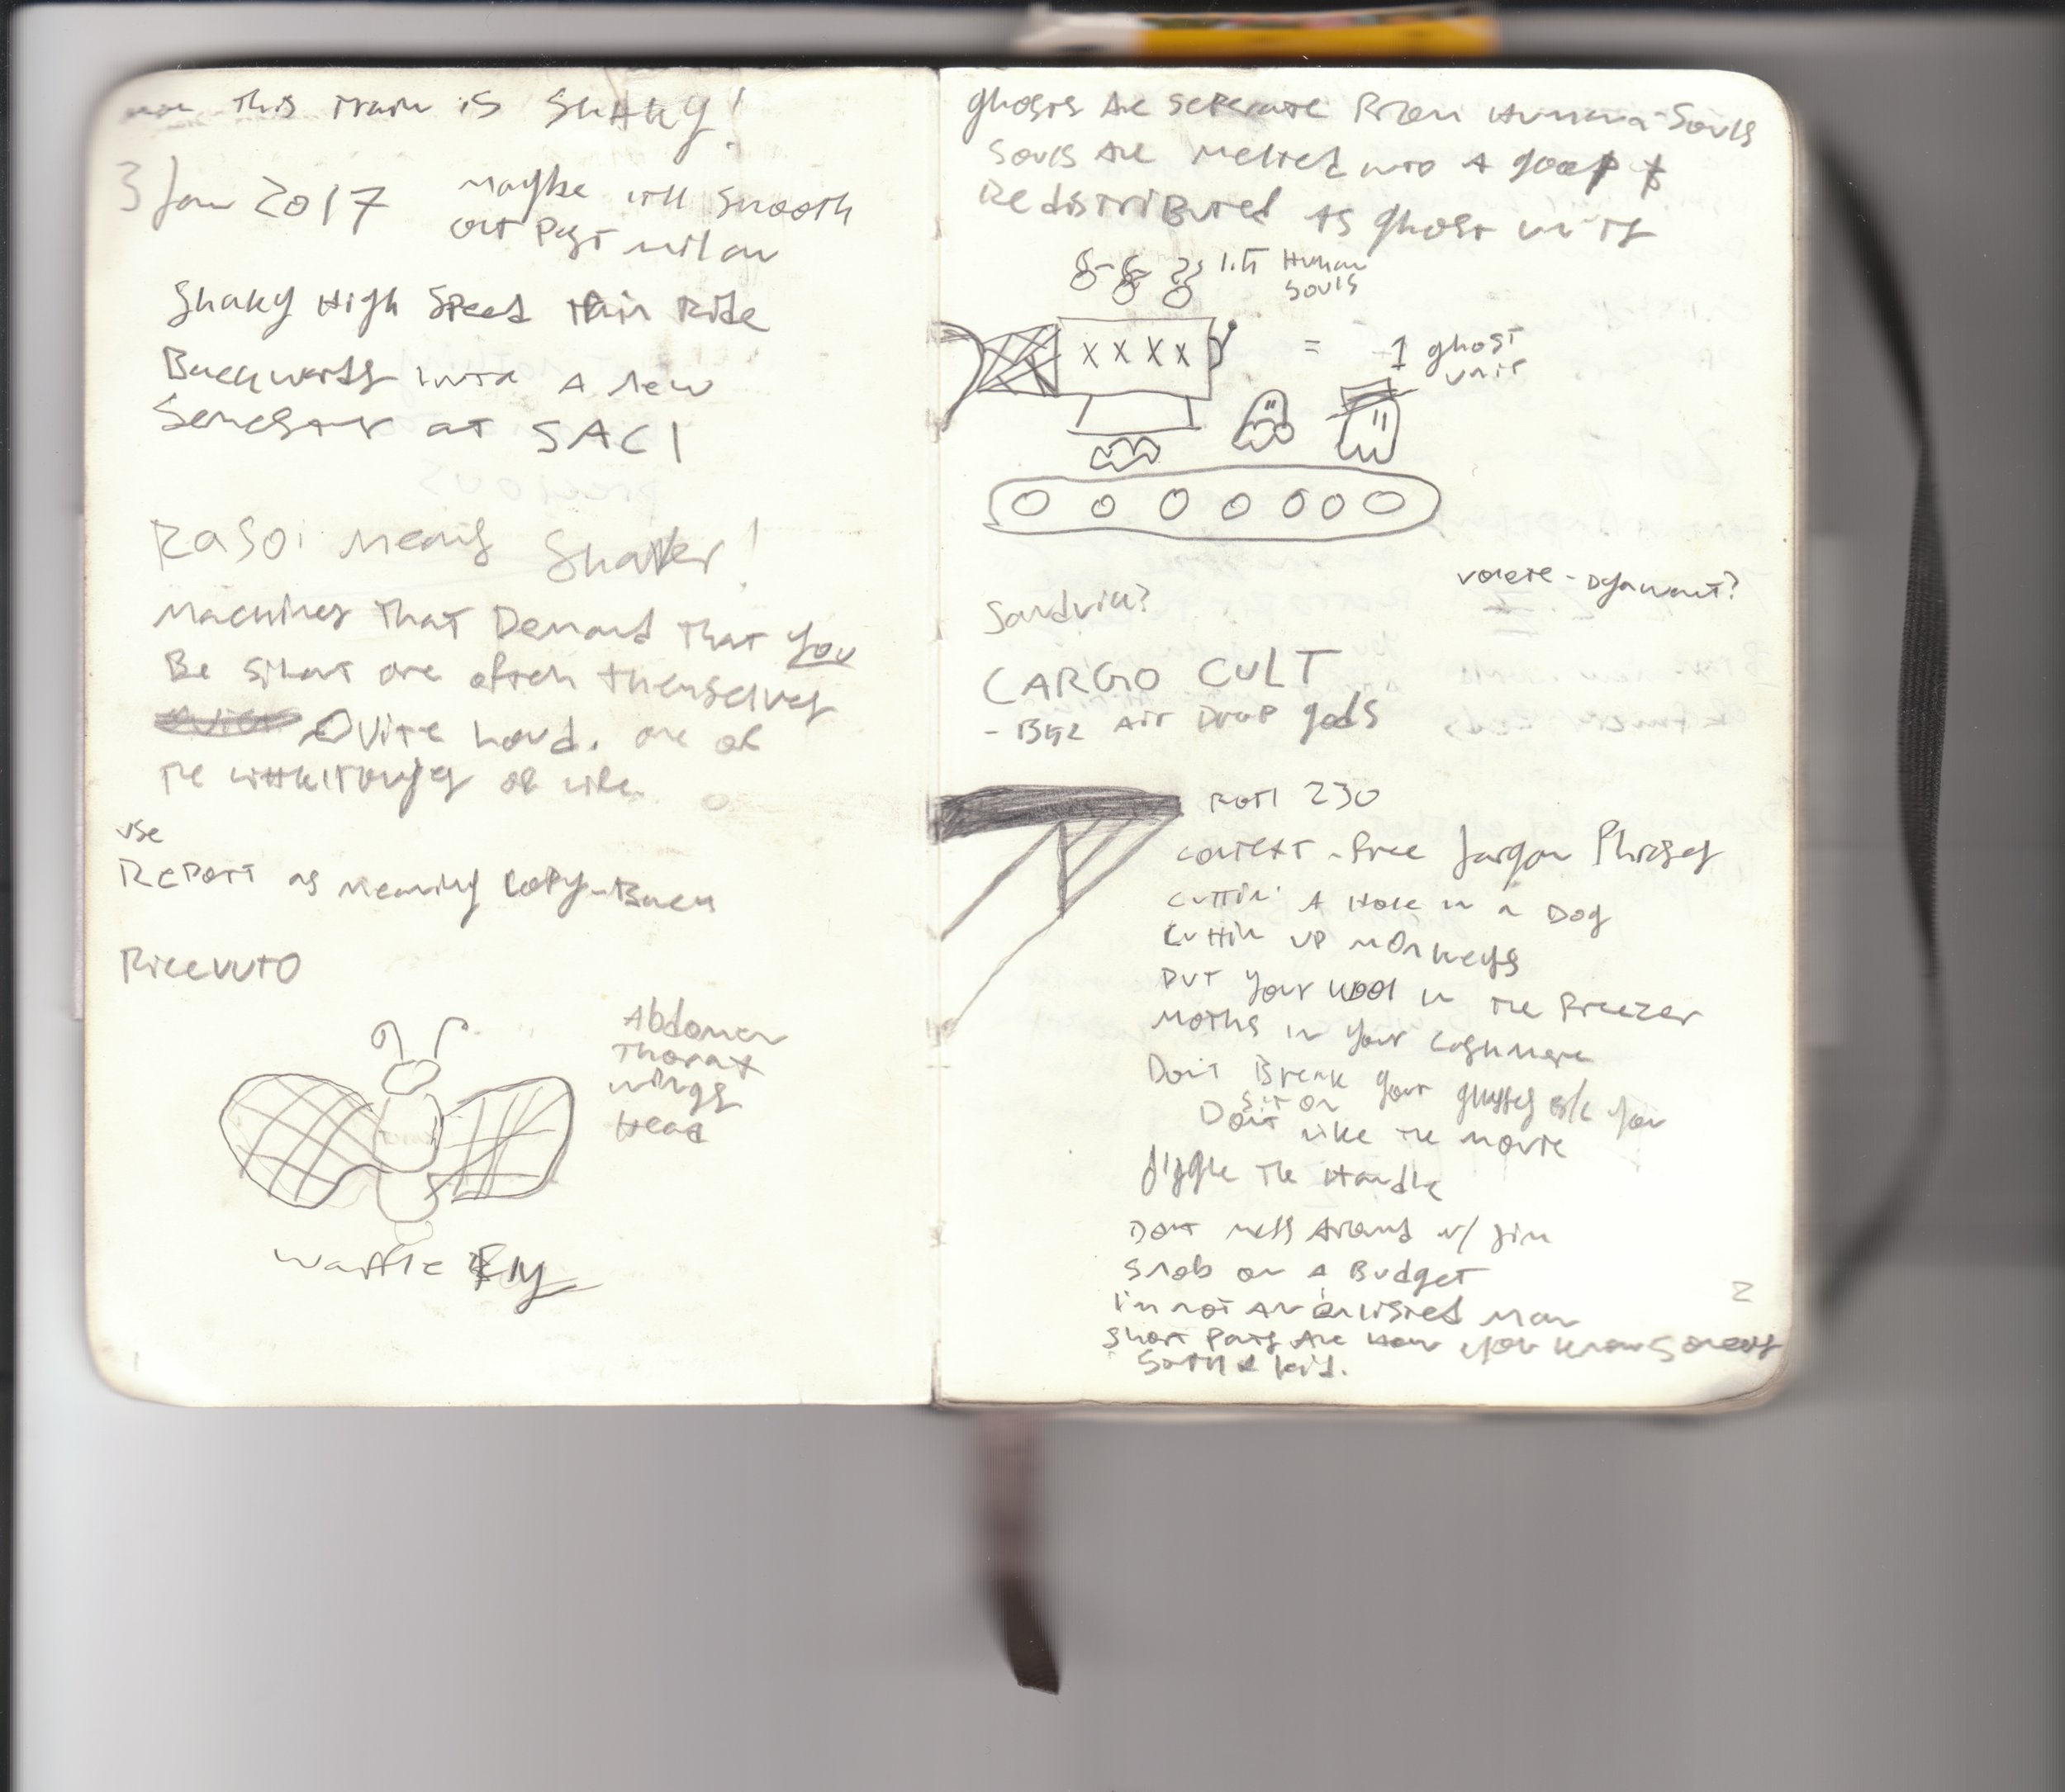 man This train is SHAKY!
3 Jan 2017
Maybe it'll smooth
out past milan
Shaky High Speed train Ride
Backwards into a new
Semester at SACI
Rasoi means Shaver!
Machines That Demand That you
Be silent are often themselves
Quite loud. one of
The little ironys of life.
use
Report as meaning copy-
Ricevuto
Abdomen
Thorax
wings
Head
waffle Fly
ghosts Are seperate From Human Souls
Souls Are melted into A goop &
Redistributed As ghost units
Human
souls
xxxx
=
1 ghost
unit
volere - Dyawant?
Sandwich?
CARGO CULT
- Air Drop gods
230
context-free Jargon Phrases
cuttin' A Hole in a Dog
cuttin up monkeys
put your wool in the freezer
moths in your cashmere
Don't Break your glasses b/c you
sit on
Don't like the movie
jiggle The Handle
Dont mess Around w/ Jim
snob on a Budget
I'm not an enlisted man
short pants Are How you know
kid.
2
1